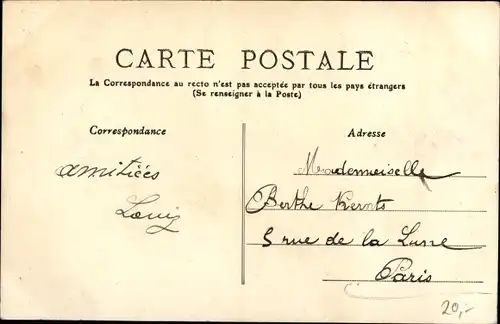 CARTE POSTALE
La Correspondance au recto n'est pas acceptée par tous les pays étrangers
(Se renseigner à la Poste)
Correspondance
Adresse
amitiées
Louis
Mademoiselle
Berthe Kernts
5 rue de la Lune
Paris
20,-